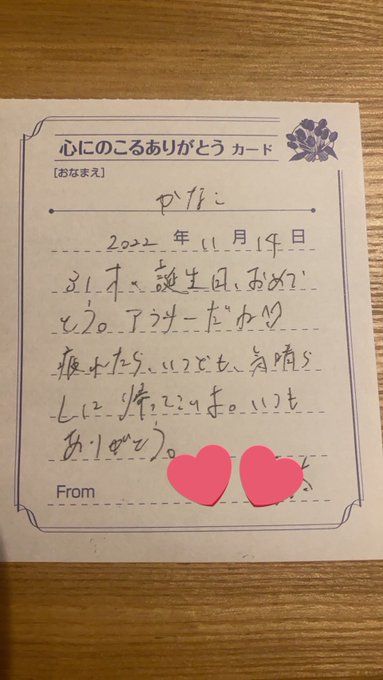 心にのこるありがとう カード
[おなまえ]
かなこ
2022 年 11 月 14 日
31才の誕生日、おめで
とう。アラサーだね
疲れたら、いつでも、気晴ら
しに帰ってこいよ。いつも
ありがとう。
From